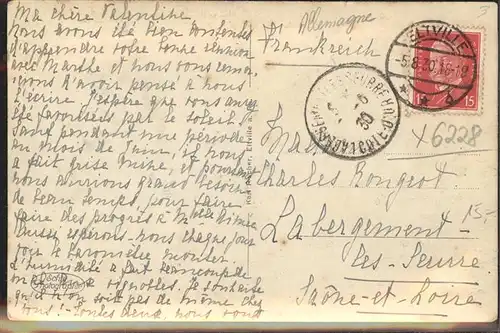 Ma chère Valentine
Nous avons été bien contentes
d'apprendre votre bonne réunion
avec Marthe et nous vous remer-
cions d'avoir pensé à nous
l'écrire. J'espère que vous aurez
été favorisées par le soleil.
Sauf pendant une période
au mois de Juin, il nous
a fait grise mine, et pourtant
nous aurions grand besoin
de beau temps, pour faire
faire des progrès à Melle
Aussi, espérons-nous chaque jour
voir le baromètre monter.
L'humidité a fait beaucoup de
mal aux vignobles. Je souhaite
qu'il n'en soit pas de même chez
vous! Toutes deux, nous vous
Allemagne
Frankreich
ELTVILLE
-5.8.30.18-19
15 15
6228
Charles Rongeot
Labergement-
les-Seurre
Saône-et-Loire
15,-